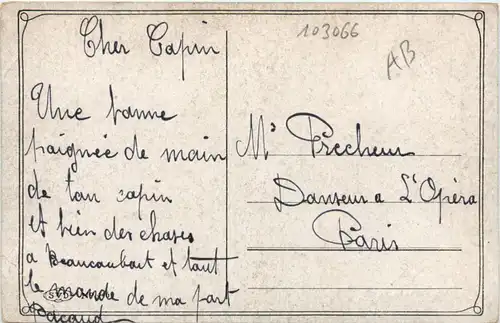 103066
AB
Cher Copin
Une bonne
poignée de main
de ton copin
et bien des choses
a Beaucoubart et tout
le monde de ma part
Bacaud
Mr Precheur
Danseur a L'Opéra
Paris